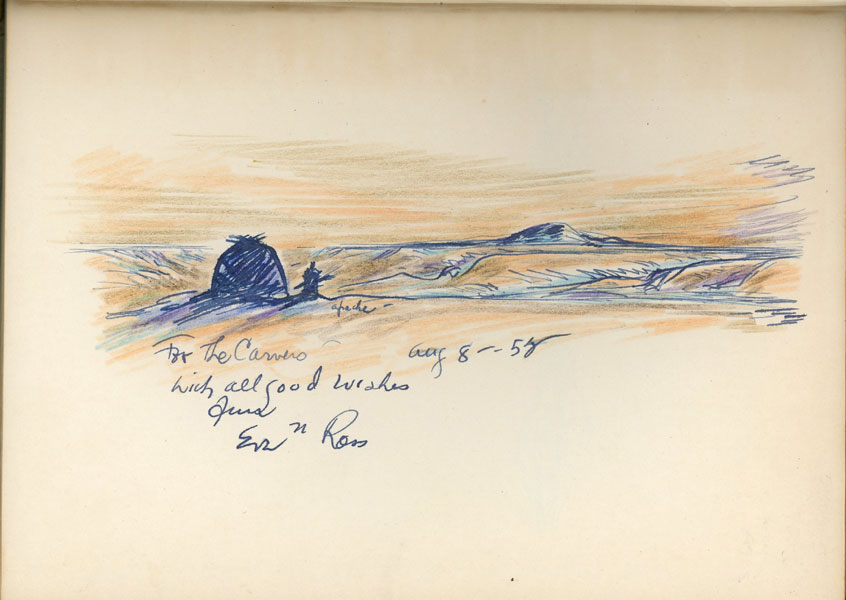 apache -
For The Carvers - aug 8 -- 58
With all good wishes
Eve n Ross